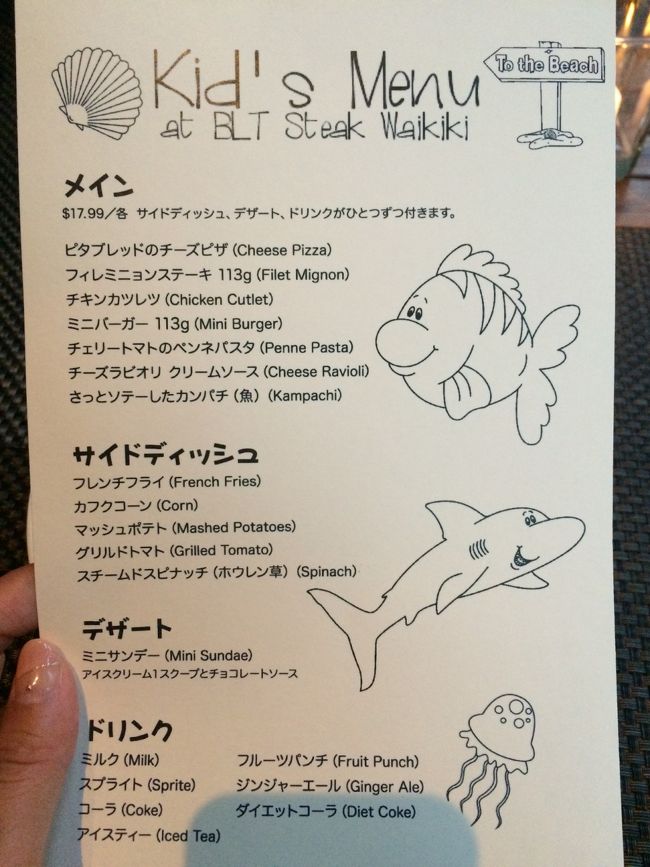 Kid's Menu
To the Beach
at BLT Steak Waikiki
メイン
$17.99／各 サイドディッシュ、デザート、ドリンクがひとつずつ付きます。
ピタブレッドのチーズピザ (Cheese Pizza)
フィレミニョンステーキ 113g (Filet Mignon)
チキンカツレツ (Chicken Cutlet)
ミニバーガー 113g (Mini Burger)
チェリートマトのペンネパスタ (Penne Pasta)
チーズラビオリ クリームソース (Cheese Ravioli)
さっとソテーしたカンパチ（魚）(Kampachi)
サイドディッシュ
フレンチフライ (French Fries)
カフクコーン (Corn)
マッシュポテト (Mashed Potatoes)
グリルドトマト (Grilled Tomato)
スチームドスピナッチ（ホウレン草）(Spinach)
デザート
ミニサンデー (Mini Sundae)
アイスクリーム1スクープとチョコレートソース
ドリンク
ミルク (Milk) フルーツパンチ (Fruit Punch)
スプライト (Sprite) ジンジャーエール (Ginger Ale)
コーラ (Coke) ダイエットコーラ (Diet Coke)
アイスティー (Iced Tea)